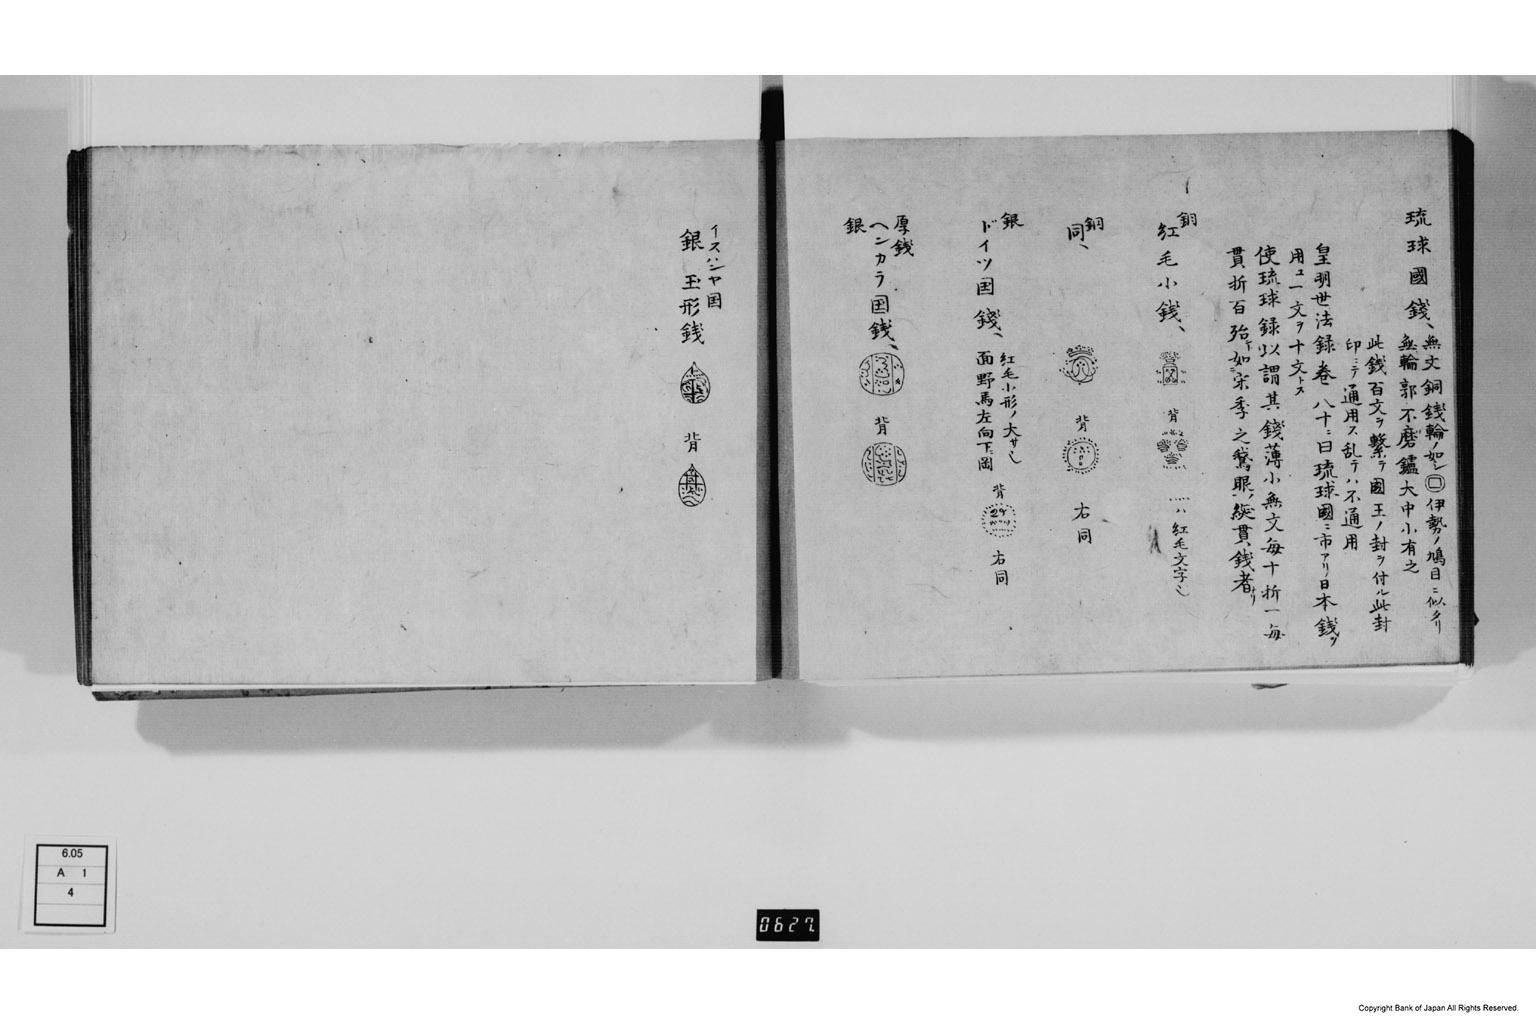 琉球國錢、
無文銅錢輪ノ如シ 伊勢ノ鳩目ニ似タリ
無輪郭不磨鑪大中小有之
此錢百文ヲ繋テ國王ノ封ヲ付ル此封
印ニテ通用ス乱テハ不通用
皇明世法録巻八十ニ曰琉球國ニ市アリ日本錢ヲ
用ユ一文ヲ十文トス
使琉球録以謂其錢薄小無文每十折一每
貫折百殆如宋季之鵞眼、綖貫、錢者ナリ
銅
紅毛小錢、
背
ハ紅毛文字也
銅
同、
背
右同
銀
ドイツ国錢、
紅毛小形ノ大サ也
面野馬左向下ニ岡
背
29
右同
厚錢
ヘンカラ国錢、
銀
背
イスハンヤ国
銀 玉形錢
背
6.05
A 1
4
0627
Copyright Bank of Japan All Rights Reserved.